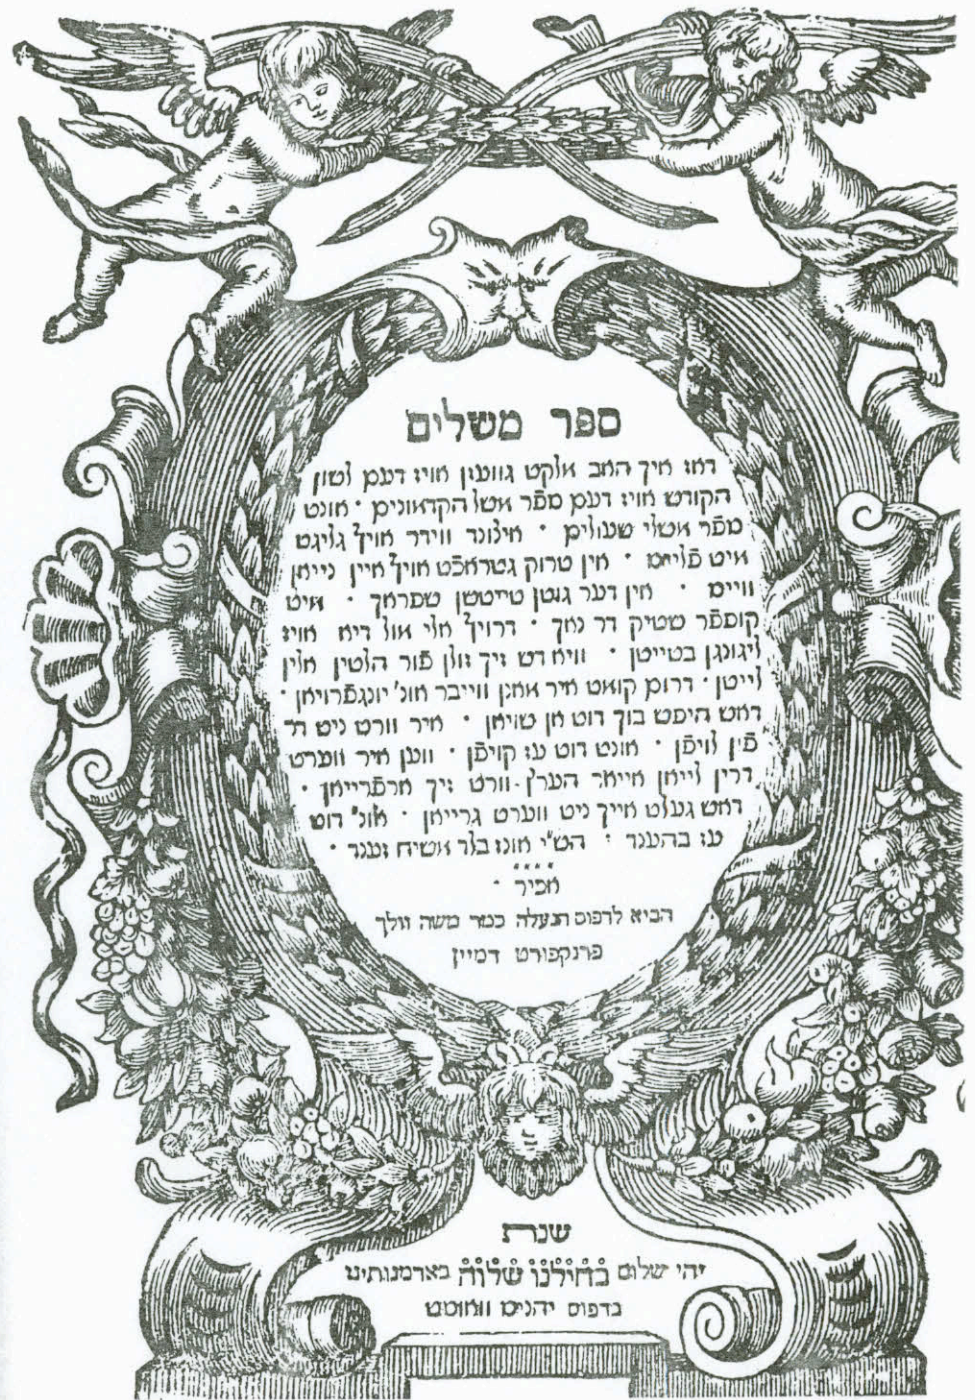 ספר משלים
דאז איך האב אלקט גוועזן אויז דעם לשון
הקודש אויז דעם ספֿר משל הקדמונים · אונט
ספֿר משלי שועלים · אילונד ווידר אויף גליגט
מיט פֿלייס · אין טרוק גטראכֿט אויף איין נייאן
ווייס · אין דער גוטן טייטשן שפראך · מיט
קופספר שטיק דר נאך · דרויף אלי מול דיא אויז
ליגונגן בטייטן · וויא דש זיך זולן פֿור הלטין אלין
לייטן · דרום קואט איר מאנן ווייבר אונ' יונגפֿרויאן ·
דאש היפש בוך דוט אן שויאן · איר ווערט ניט דר
פֿין לויפֿן · אונט דוט עז קויפֿן · ווען איר ווערט
דרין לייאן אייאר הערץ · ווערט זיך ארפֿרייאן ·
דאש געלט אייך ניט ווערט גרייאן · אונ' דוט
עז בהענד · הש"י אונז בלד משיח זענד ·
אכי"ר ·
הביא לדפוס הנעלה כמר משה וולך
פרנקפורט דמיין
שנת
יהי שלום בחילנו שלוה בארמנותינו
בדפוס יהניס וואוסט